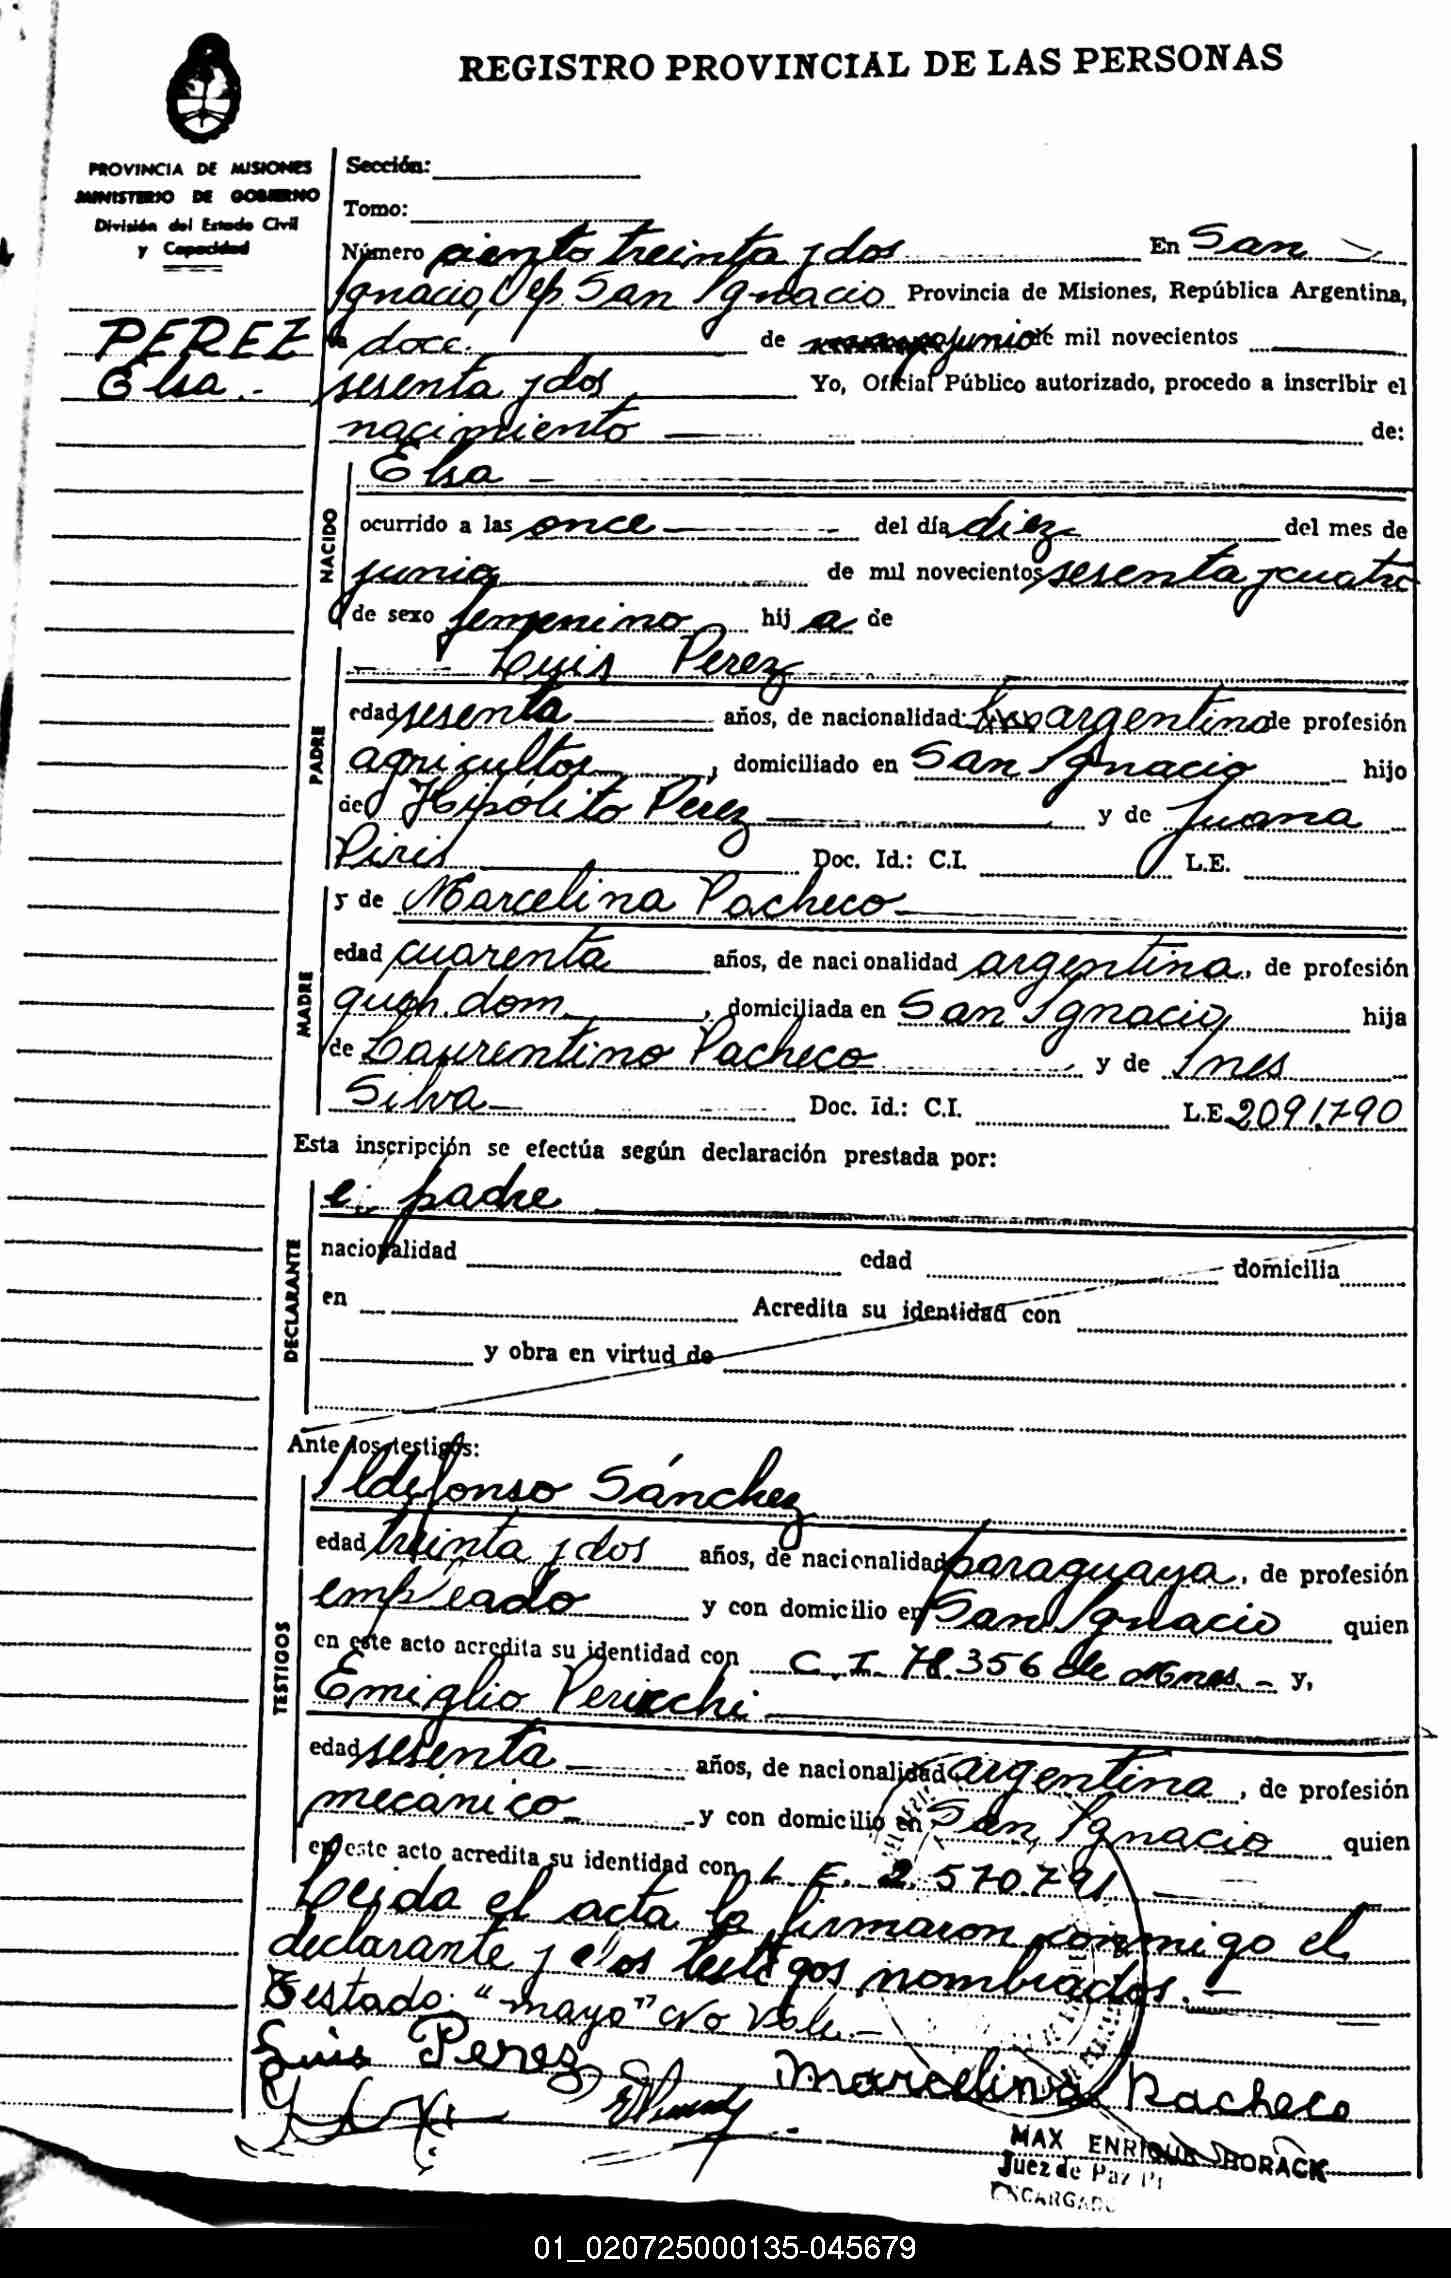 REGISTRO PROVINCIAL DE LAS PERSONAS
PROVINCIA DE MISIONES
MINISTERIO DE GOBIERNO
División del Estado Civil
y Capacidad
PEREZ
Elsa.-
Sección:
Tomo:
Número ciento treinta y dos En San
Ignacio, Dep San Ignacio Provincia de Misiones, República Argentina,
a doce. de junio de mil novecientos
sesenta y dos Yo, Oficial Público autorizado, procedo a inscribir el
nacimiento de:
NACIDO
Elsa -
ocurrido a las once del día diez del mes de
junio de mil novecientos sesenta y cuatro
de sexo femenino hij a de
PADRE
Luis Perez
edad sesenta años, de nacionalidad argentino de profesión
agricultor, domiciliado en San Ignacio hijo
de Hipólito Pérez y de Juana
Piris Doc. Id.: C.I. L.E.
MADRE
y de Marcelina Pacheco
edad cuarenta años, de nacionalidad argentina, de profesión
queh. dom., domiciliada en San Ignacio hija
de Laurentino Pacheco y de Ines
Silva Doc. Id.: C.I. L.E. 2091.790
Esta inscripción se efectúa según declaración prestada por:
DECLARANTE
el padre
nacionalidad edad domicilia
en Acredita su identidad con
y obra en virtud de
Ante los testigos:
TESTIGOS
Ildefonso Sánchez
edad treinta y dos años, de nacionalidad paraguaya, de profesión
empleado y con domicilio en San Ignacio quien
en este acto acredita su identidad con C.I. 78.356 de Mnes.- y,
Emiglio Pericchi
edad sesenta años, de nacionalidad argentina, de profesión
mecánico y con domicilio en San Ignacio quien
en este acto acredita su identidad con L.E. 2.570.791
Leida el acta la firmaron conmigo el
declarante y los testigos nombrados.-
Testado: "mayo" No Vale.-
Luis Perez Marcelina Pacheco
MAX ENRIQUE BORACK
Juez de Paz
ENCARGADO
01_020725000135-045679